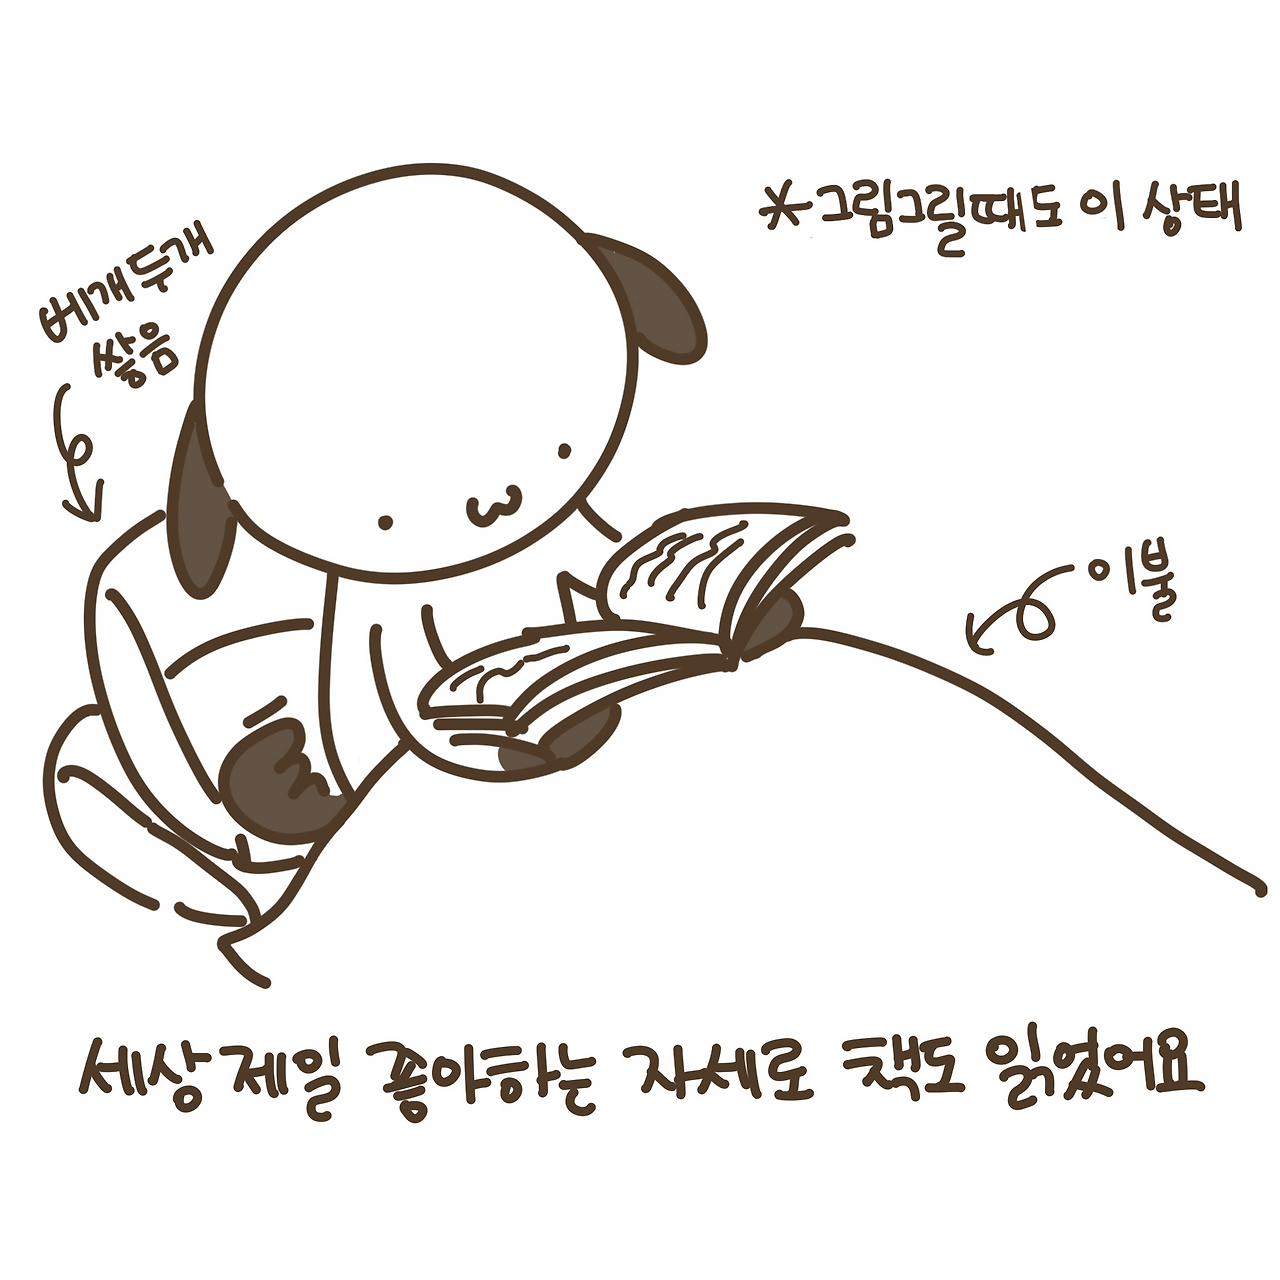 *그림그릴때도 이 상태
베개 두개
쌓음
이불
세상 제일 좋아하는 자세로 책도 읽었어요